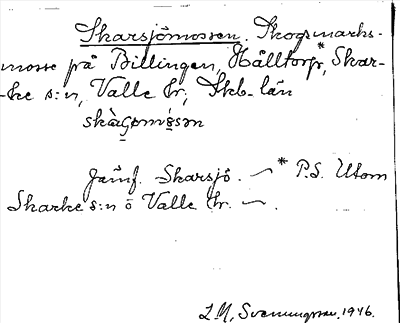 Skarsjömossen. Skogsmarks-
mosse på Billingen, Hälltorp*, Skar-
-ke s:n, Valle hr, Skb-län
skàʂomósən
Jämf. Skarsjö. ~ * P.S. Utom
Skarke s:n ö Valle hr. ~.
L.M. Svenungsson. 1946.